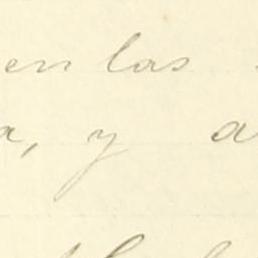 en las
a, y a